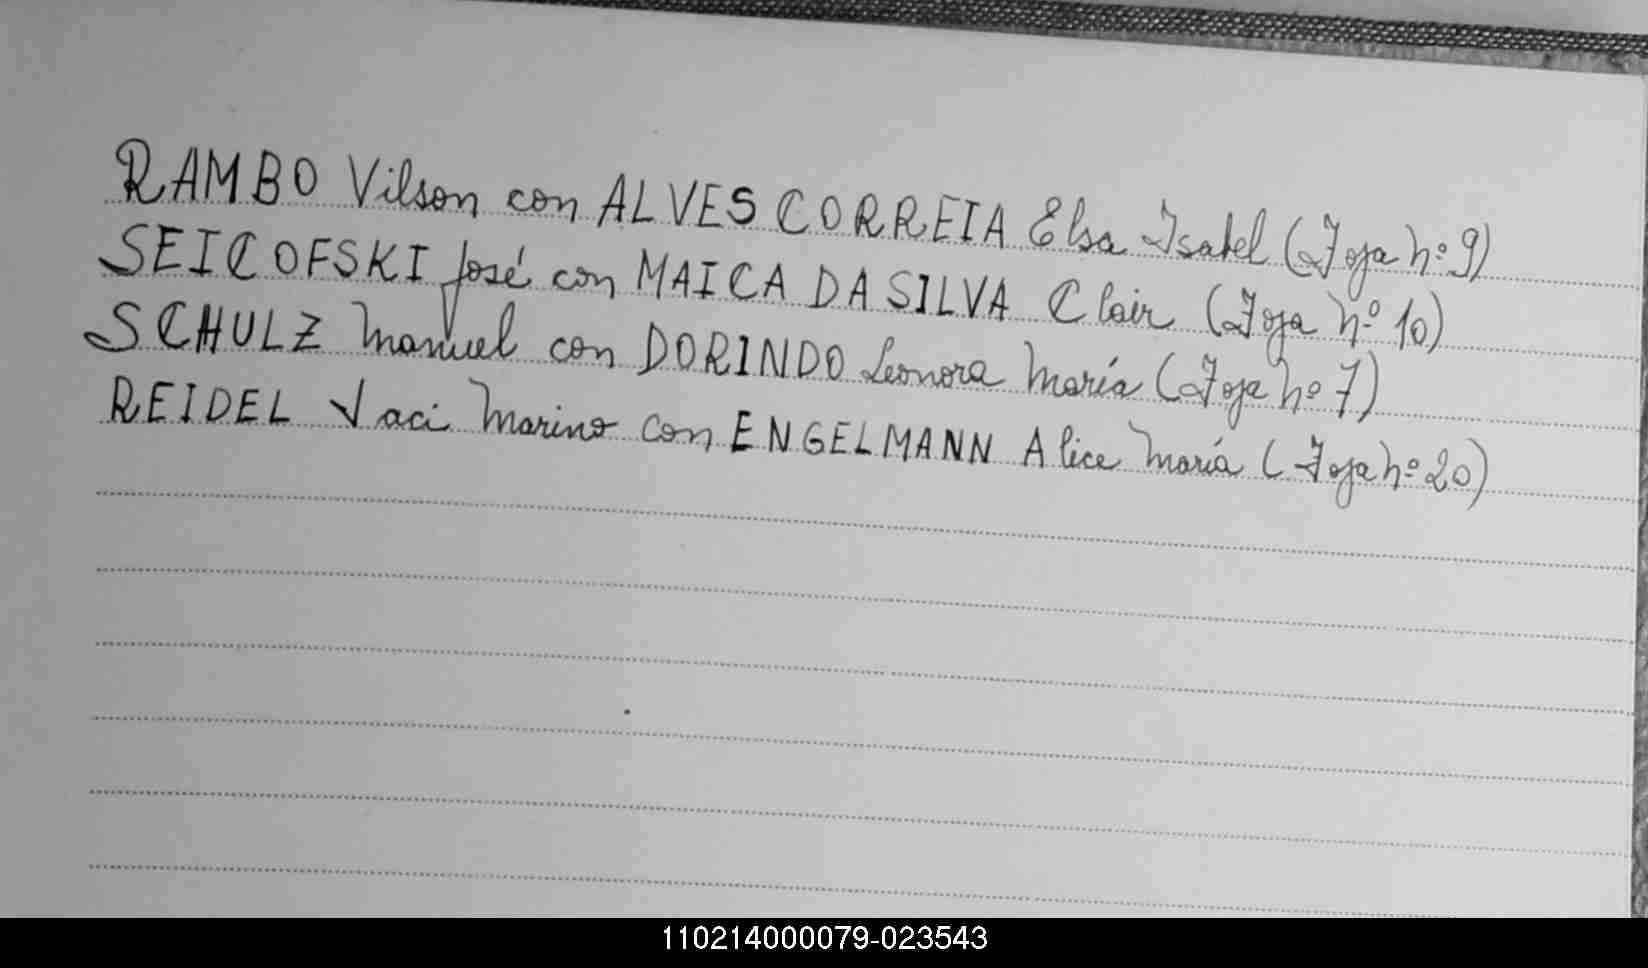 RAMBO Vilson con ALVES CORREIA Elsa Isabel (Foja nº 9)
SEICOFSKI José con MAICA DA SILVA Clair (Foja nº 10)
SCHULZ Manuel con DORINDO Leonora María (Foja nº 7)
REIDEL Jaci Marino con ENGELMANN Alice María (Foja nº 20)
110214000079-023543